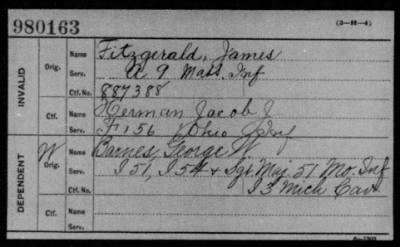 980163
(3-H-4)
INVALID
Orig.
Name Fitzgerald, James
Serv. A 9 Mass. Inf
Ctf. No. 887388
Ctf.
Name Herman Jacob J
Serv. F 156 Ohio Inf
DEPENDENT
W Orig.
Name Barnes, George W
Serv. I 51, I 54 & Sgt. Maj. 51 Mo. Inf
Ctf. No. I 3 Mich Cav
Ctf.
Name
Serv.